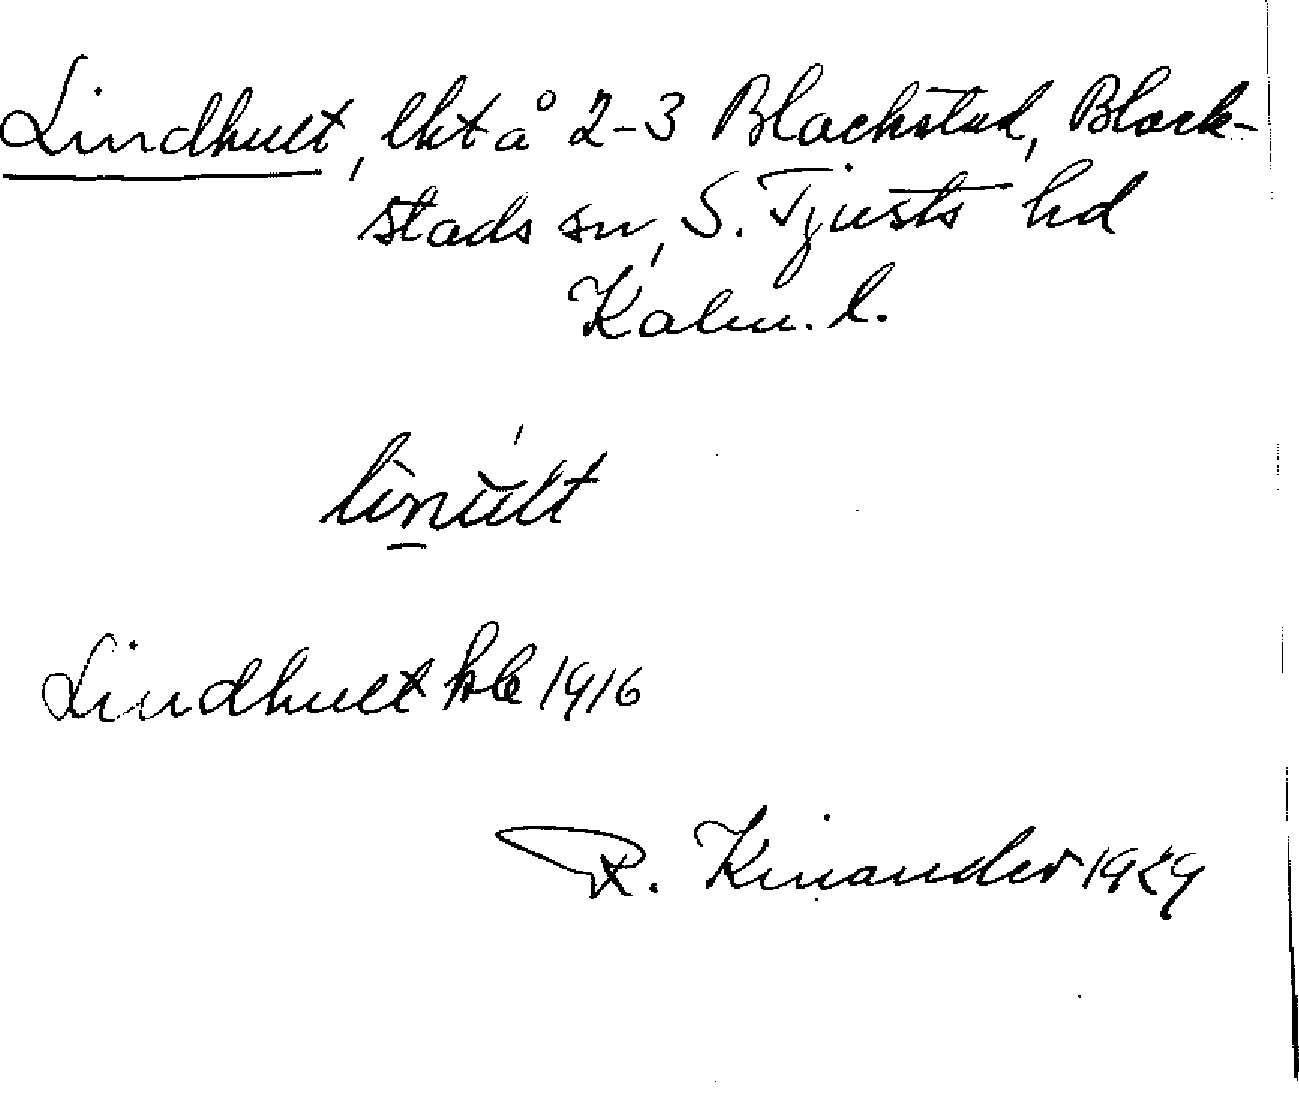 Lindhult, lht å 2-3 Blackstad, Black-
stads sn, S. Tjusts hd
Kalm. l.
linult
Lindhult hbl 1916
R. Kinander 1929